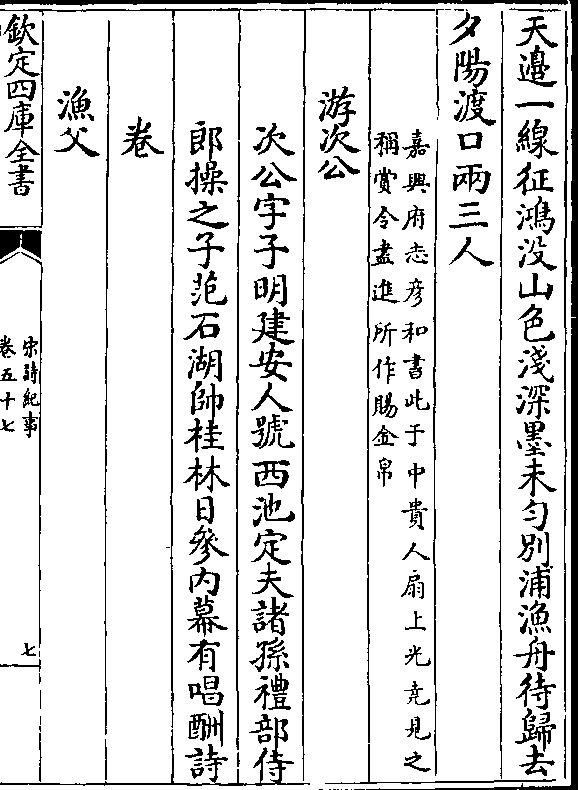 天邉一線征鴻没山色淺深墨未匀別浦漁舟待歸去
夕陽渡口兩三人
嘉興府志彦和書此于中貴人扇上光堯見之
稱賞令盡進所作賜金帛
游次公
次公字子明建安人號西池定夫諸孫禮部侍
郎操之子范石湖帥桂林日參内幕有唱酬詩
卷
漁父
欽定四庫全書
宋詩紀事
卷五十七
七